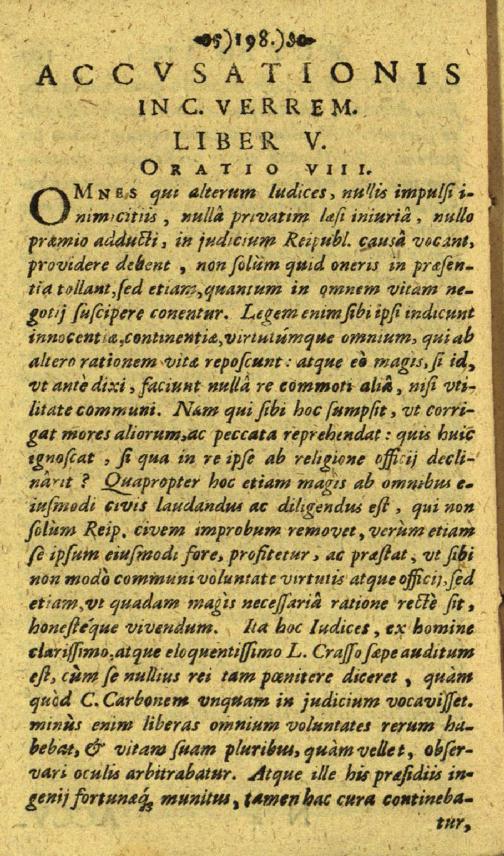 05)198.)50
ACCVSATIONIS
IN C. VERREM.
LIBER V.
ORATIO VIII.
OMNES qui alterum Iudices, nullis impulsi i-
nimicitiis, nullâ privatim læsi iniuriâ, nullo
præmio adducti, in judicium Reipubl. causâ vocant,
providere debent, non solùm quid oneris in præsen-
tia tollant, sed etiam, quantum in omnem vitam ne-
gotij suscipere conentur. Legem enim sibi ipsi indicunt
innocentiæ, continentiæ, virtutúmque omnium, qui ab
altero rationem vitæ reposcunt: atque eò magis, si id,
vt antè dixi, faciunt nullâ re commoti aliâ, nisi vti-
litate communi. Nam qui sibi hoc sumpsit, vt corri-
gat mores aliorum, ac peccata reprehendat: quis huic
ignoscat, si qua in re ipse ab religione officij decli-
nârit? Quapropter hoc etiam magis ab omnibus e-
iusmodi civis laudandus ac diligendus est, qui non
solùm Reip. civem improbum removet, verùm etiam
se ipsum eiusmodi fore, profitetur, ac præstat, vt sibi
non modò communi voluntate virtutis atque officij, sed
etiam, vt quadam magis necessariâ ratione rectè sit,
honestéque vivendum. Ita hoc Iudices, ex homine
clarissimo, atque eloquentissimo L. Crasso sæpe auditum
est, cùm se nullius rei tam pœnitere diceret, quàm
quòd C. Carbonem vnquam in judicium vocavisset.
minùs enim liberas omnium voluntates rerum ha-
bebat, & vitam suam pluribus, quàm vellet, obser-
vari oculis arbitrabatur. Atque ille his præsidiis in-
genij fortunæq; munitus, tamen hac cura contineba-
tur,